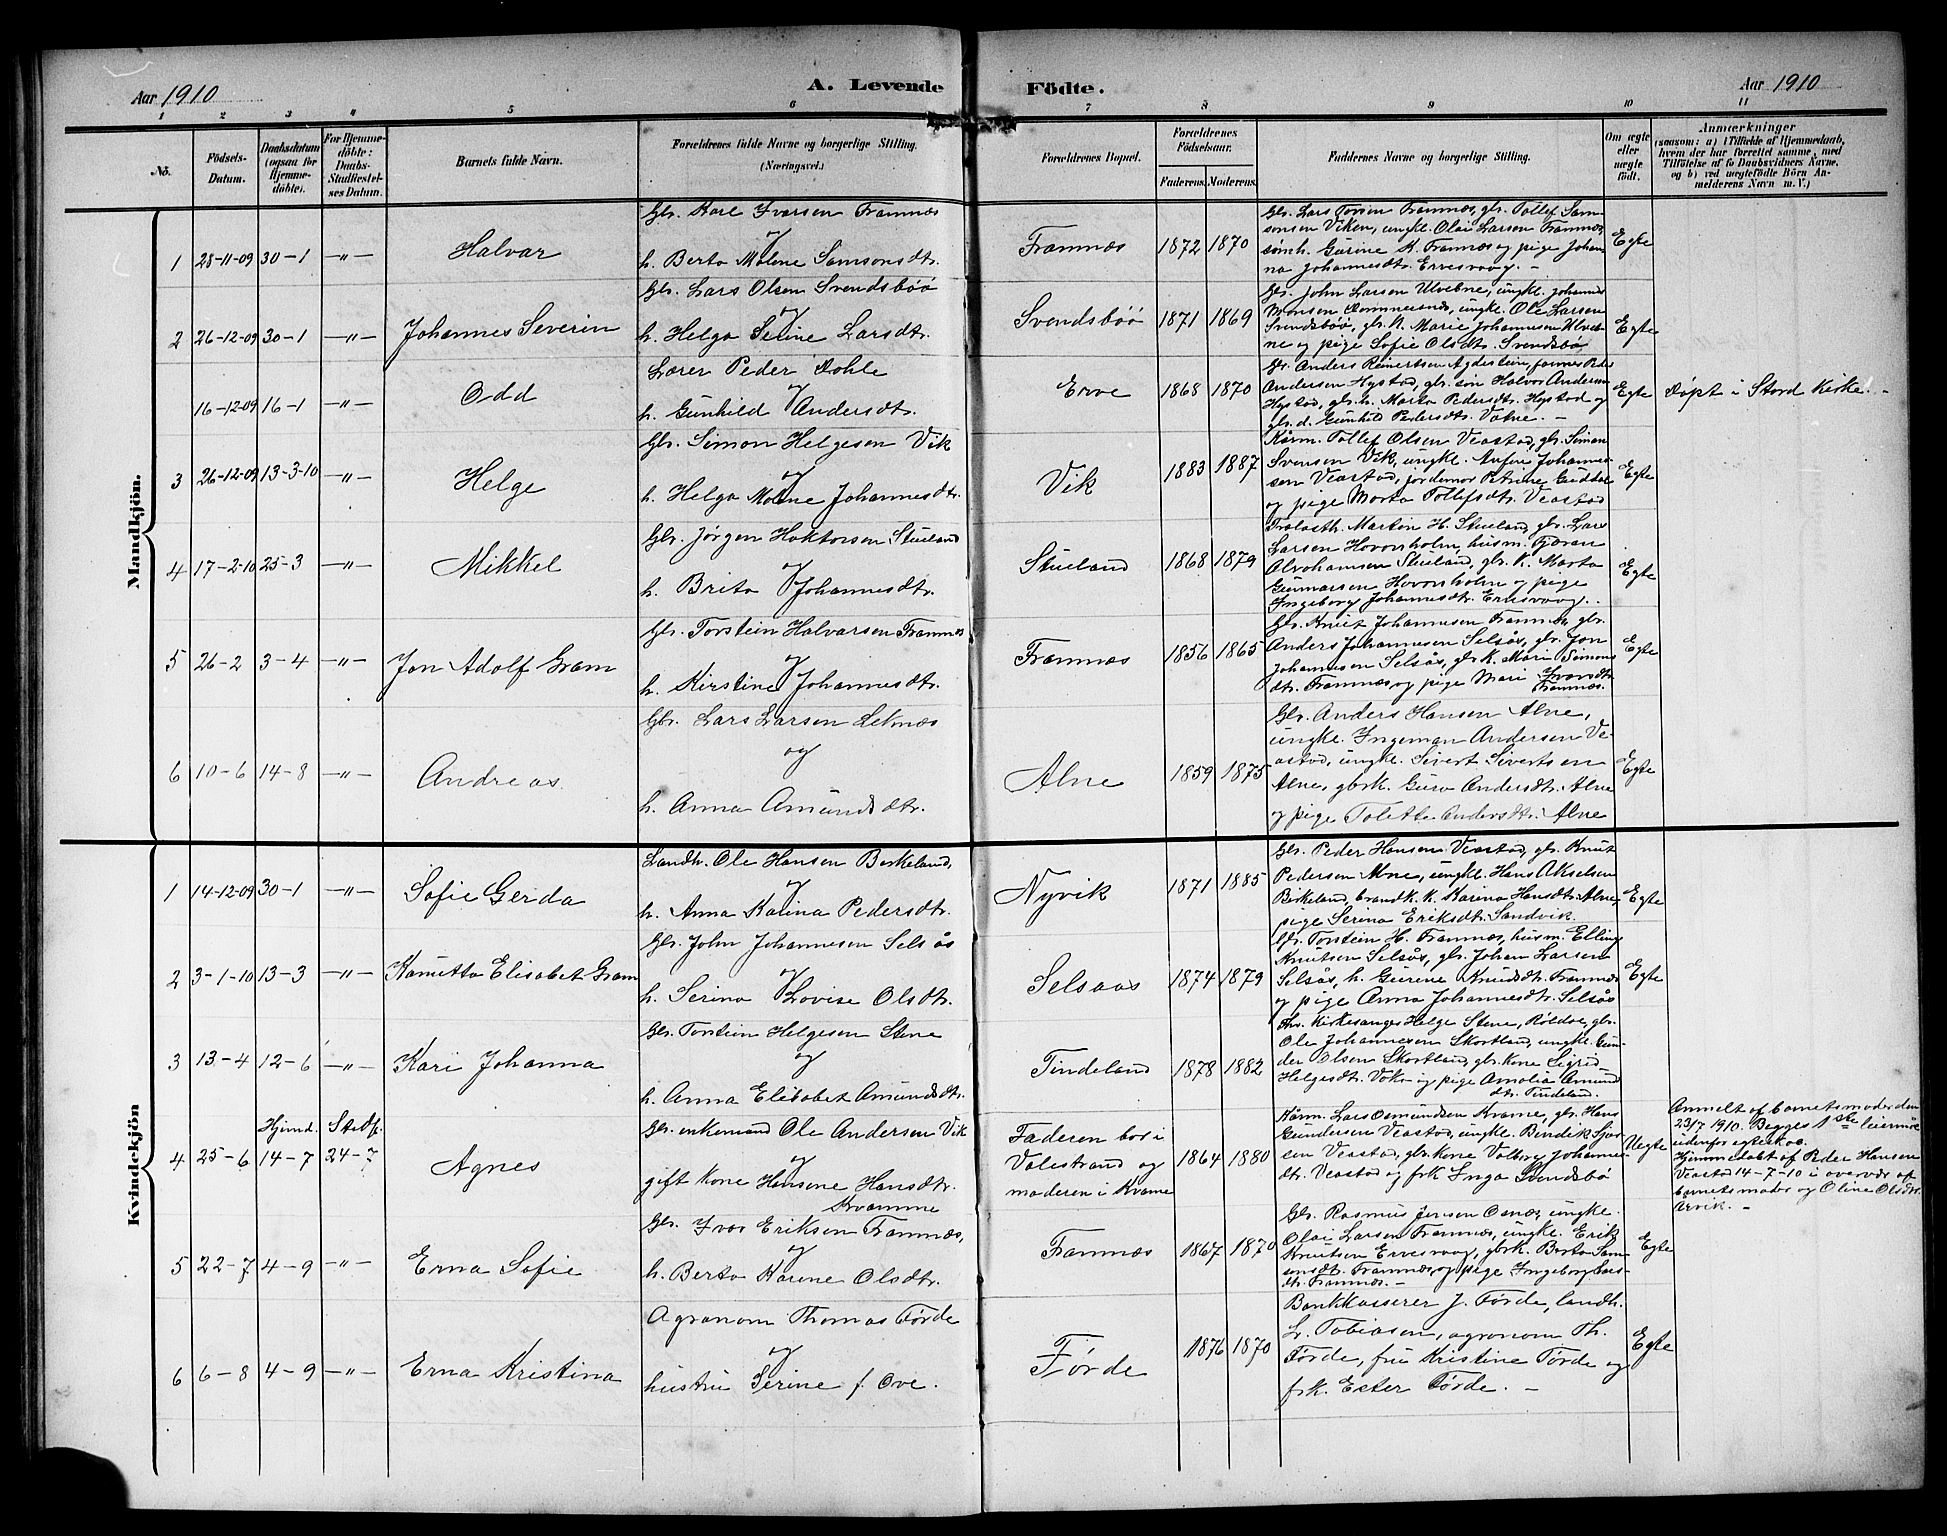 Aar 1910
A. Levende
Födte.
Aar 1910
1 2 3 4 5 6 7 8 9 10 11
No.
Födsels-
Datum.
Daabsdatum
(ogsaa for
Hjemme-
döbte).
For Hjemme-
döbte:
Daabs-
Stadfæstel-
ses Datum.
Barnets fulde Navn.
Forældrenes fulde Navne og borgerlige Stilling.
(Næringsvei.)
Forældrenes Bopæl.
Forældrenes
Födselsaar.
Faderens. Moderens.
Faddernes Navne og borgerlige Stilling.
Om ægte
eller
uægte
födt.
Anmærkninger
(saasom: a) i Tilfælde af Hjemmedaab,
hvem der har forrettet samme, med
Tilföielse af to Daabsvidners Navne,
og b) ved uægtefödte Börn An-
melderens Navn m. V.)
Mandkjön.
1 28-11-09 30-1 -"- Halvar
Gbr. Karl Ivarsen Framnæs
og
h. Berta Malene Samsonsdtr.
Framnæs 1872 1870
Gbr. Lars Torsen Framnæs, gbr. Tollef Sam-
sonsen Viken, ungk. Olai Larsen Framnæs,
sönh. Gurine K. Framnæs og pige Johan-
na Johannesdtr. Ervesvaag. -
Egte
2 26-12-09 30-1 -"- Johannes Severin
Gbr. Lars Olsen Svendsböö
og
h. Helga Serine Larsdtr.
Svendsböö 1871 1869
Gbr. John Larsen Ulvebne, ungk. Johannes
Monsen Dommersnes, ungk. Ole Larsen
Svendsböö, gbr. k. Marie Johannesen Ulveb-
ne og pige Sofie Olsdtr. Svendsbö
Egte
16-12-09 16-1 -"- Odd
Lærer Peder Dahle
og
h. Gunhild Andersdtr.
Erve 1868 1870
Gbr. Anders Reinertsen Agdestein, farmer Peder
Andersen Hystad, gbr. sön Halvor Andersen
Hystad, gbr. h. Marta Pedersdtr. Hystad og
gbr. d. Gunhild Pedersdtr. Valne. -
Egte
Döpt i Stord Kirke. -
3 26-12-09 13-3-10 -"- Helge
Gbr. Simon Helgesen Vik
og
h. Helga Malene Johannesdtr.
Vik 1883 1887
Kårm. Tollef Olsen Veastad, gbr. Simon
Svensen Vik, ungk. Anfin Johannes-
sen Veastad, jordemor Petrine Guddal
og pige Marta Tollefsdtr. Veastad
Egte
4 17-2-10 25-3 -"- Mikkel
Gbr. Jörgen Haktorsen Stueland
og
h. Brita Johannesdtr.
Stueland 1868 1879
Martin H. Stueland, gbr. Lars
Larsen Hovonsholm, husm. Fjæran
Abrahamsen Stueland, gbr. k. Marta
Gunnarsen Hovonsholm og pige
Ingeborg Johannesdtr. Ervesvaag.
Egte
5 26-2 3-4 -"- Jon Adolf Gram
Gbr. Torstein Halvarsen Framnæs
og
h. Kirstine Johannesdtr.
Framnæs 1856 1865
Gbr. Knut Johannesen Framnes, gbr.
Anders Johannesen Selsås, gbr. Jon
Johannesen Selsås, gbr. k. Mari Simons
dtr. Framnæs og pige Mari Ivarsdtr.
Framnæs.
Egte
6 10-6 14-8 -"- Andreas
Gbr. Lars Larsen Leknæs
og
h. Anna Amundsdtr.
Alne 1859 1875
Gbr. Anders Hansen Alne,
ungk. Ingeman Andersen Ve-
astad, ungk. Sivert Sivertsen
Alne, gbrk. Guro Andersdtr. Alne
og pige Tolette Andersdtr. Alne
Egte
Kvindekjön
1 14-12-09 30-1 -"- Sofie Gerda
Landh. Ole Hansen Berkeland,
og
h. Anna Karina Pedersdtr.
Nyvik 1871 1885
Gbr. Peder Hansen Veastad, gbr. Knut
Pedersen Alne, ungk. Hans Akselsen
Birkeland, k. Karina Hansdtr. Alne,
pige Serina Eriksdtr. Sandvik
Egte
2 3-1-10 13-3 -"- Kanutta Elisabet Gram
Gbr. John Johannesen Selsås
og
h. Serina Lovise Olsdtr.
Selsaas 1874 1879
Gbr. Torstein H. Framnæs, husm. Elling
Knutsen Selsås, gbr. Johan Larsen
Selsås, h. Gurine Knudsdtr. Framnæs
og pige Anna Johannesdtr. Selsås
Egte
3 13-4 12-6 -"- Kari Johanna
Gbr. Torstein Helgesen Stene
og
h. Anna Elisabet Amundsdtr.
Tindeland 1878 1882
Fhv. Kirkesanger Helge Stene, Röldal, gbr.
Ole Johannesen Skortland, ungk. Gun-
der Olsen Skortland, gbr. kone Sigrid
Helgesdtr. Vaka og pige Amalia Amund
dtr. Tindeland.
4 25-6 Hjemd. 14-7 Stadf. 24-7 Agnes
Gbr. enkemand Ole Andersen Vik
og
gift Kone Hansene Hansdtr.
Kvamme
Faderen bor i
Valestrand og
moderen i Kvame
1864 1880
Kårm. Lars Osmundsen Kvame, gbr. Hans
Gundersen Veastad, ungk. Bendik Sjur-
sen Veastad, gbr. kone Valborg Johannes-
dtr. Veastad og frk. Inga Svendsbö
Uegte
Anmelt af barnets moder den
23/7 1910. Begges 1ste leiermål
udenfor egteskab.
Hjemmedøbt af Peder Hansen
Veastad 14-7-10 i overvær af
barnets moder og Oline Olsdtr.
Ervik. -
5 22-7 4-9 -"- Erna Sofie
Gbr. Ivar Eriksen Framnæs,
og
h. Berta Karine Olsdtr.
Framnæs 1867 1870
Gbr. Rasmus Jensen Osnæs, ungk.
Olai Larsen Framnæs, ungk. Erik
Knutsen Ervesvaag, gbrk. Berta Sam-
onsdt. Framnæs og pige Ingeborg Lars-
dtr. Framnæs. -
Egte
6 6-8 4-9 -"- Erna Kristina
Agronom Thomas Förde
og
hustru Serine f. Ove.
Förde 1876 1870
Bankkasserer J. Förde, landh.
L. Tobiasen, agronom Th.
Förde, fru Kristine Förde og
frk. Ester Förde. -
Egte